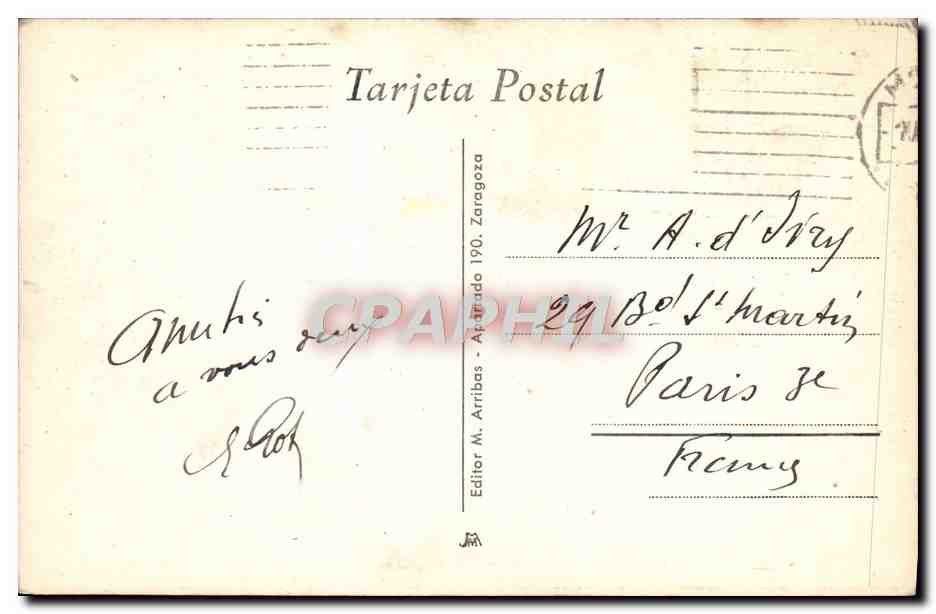 Tarjeta Postal
Amitiés
a vous deux
Mr. A. d'Ivry
29 Bd St Martin
Paris 3e
France
Editor M. Arribas - Apartado 190. Zaragoza
CPAPHIL